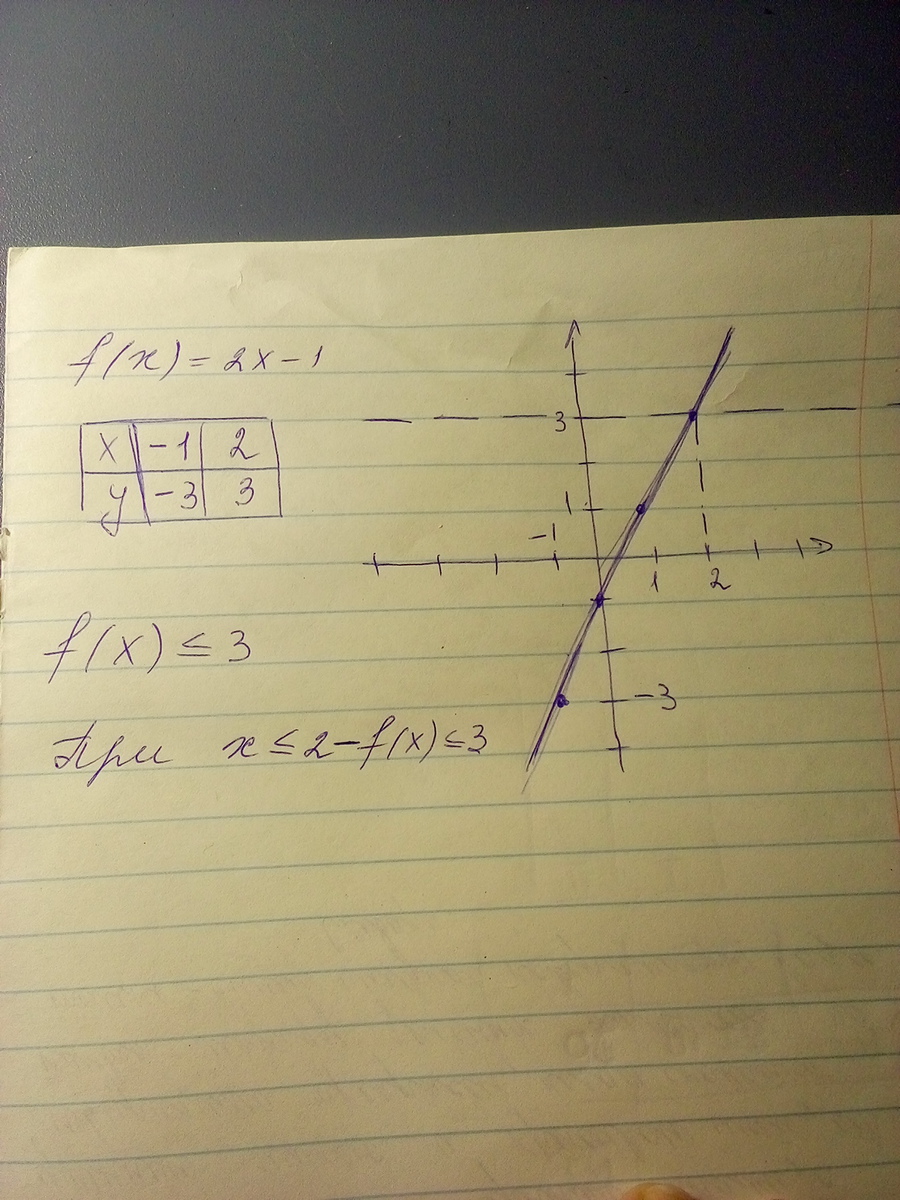 f(x) = 2x - 1
x -1 2
y -3 3
f(x) ≤ 3
При x ≤ 2 - f(x) ≤ 3
3
1
-1
1 2
-3